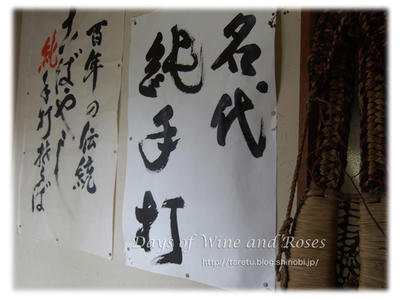 名代
純手打
百年の伝統
ばやし
純手打そば
Days of Wine and Roses
http://taretu.blog.shinobi.jp/